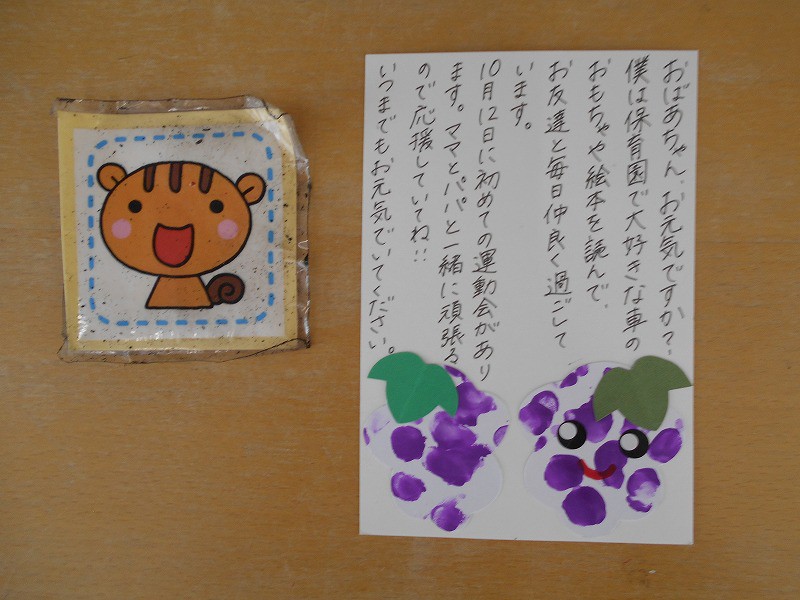 おばあちゃん、お元気ですか？
僕は保育園で大好きな車の
おもちゃや絵本を読んで、
お友達と毎日仲良く過ごして
います。
10月12日に初めての運動会があり
ます。ママとパパと一緒に頑張る
ので応援していてね!!
いつまでもお元気でいてください。